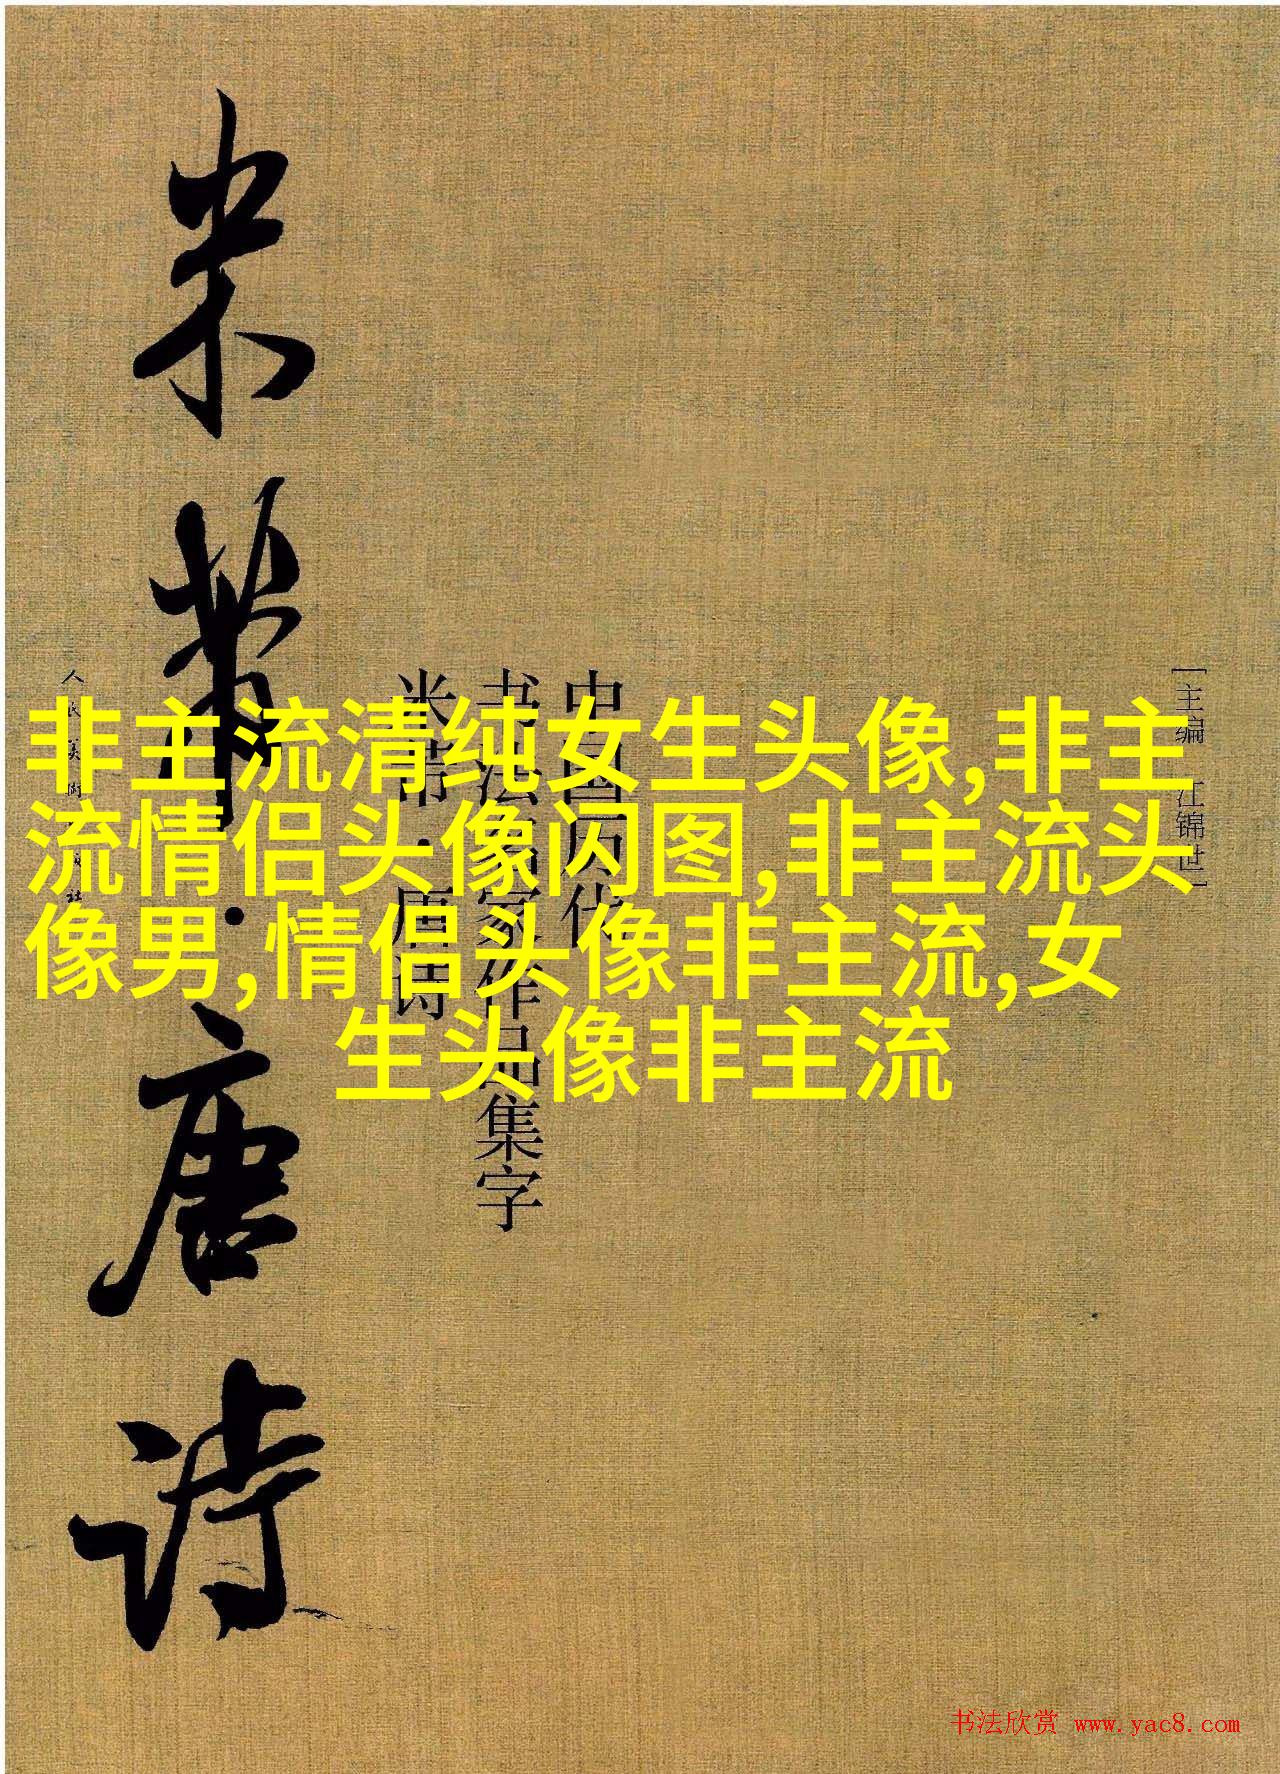 米芾·唐诗
中国历代
书法名家作品集字
米芾·唐诗
[主编 江锦世]
人民美术出版社
非主流清纯女生头像,非主
流情侣头像闪图,非主流头
像男,情侣头像非主流,女
生头像非主流
书法欣赏 www.yac8.com